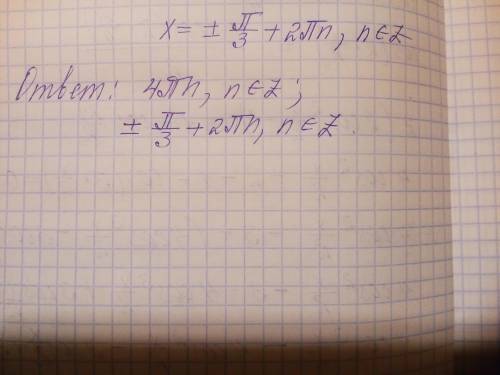 x = ± π/3 + 2πn, n ∈ Z
Ответ: 4πn, n ∈ Z;
± π/3 + 2πn, n ∈ Z.